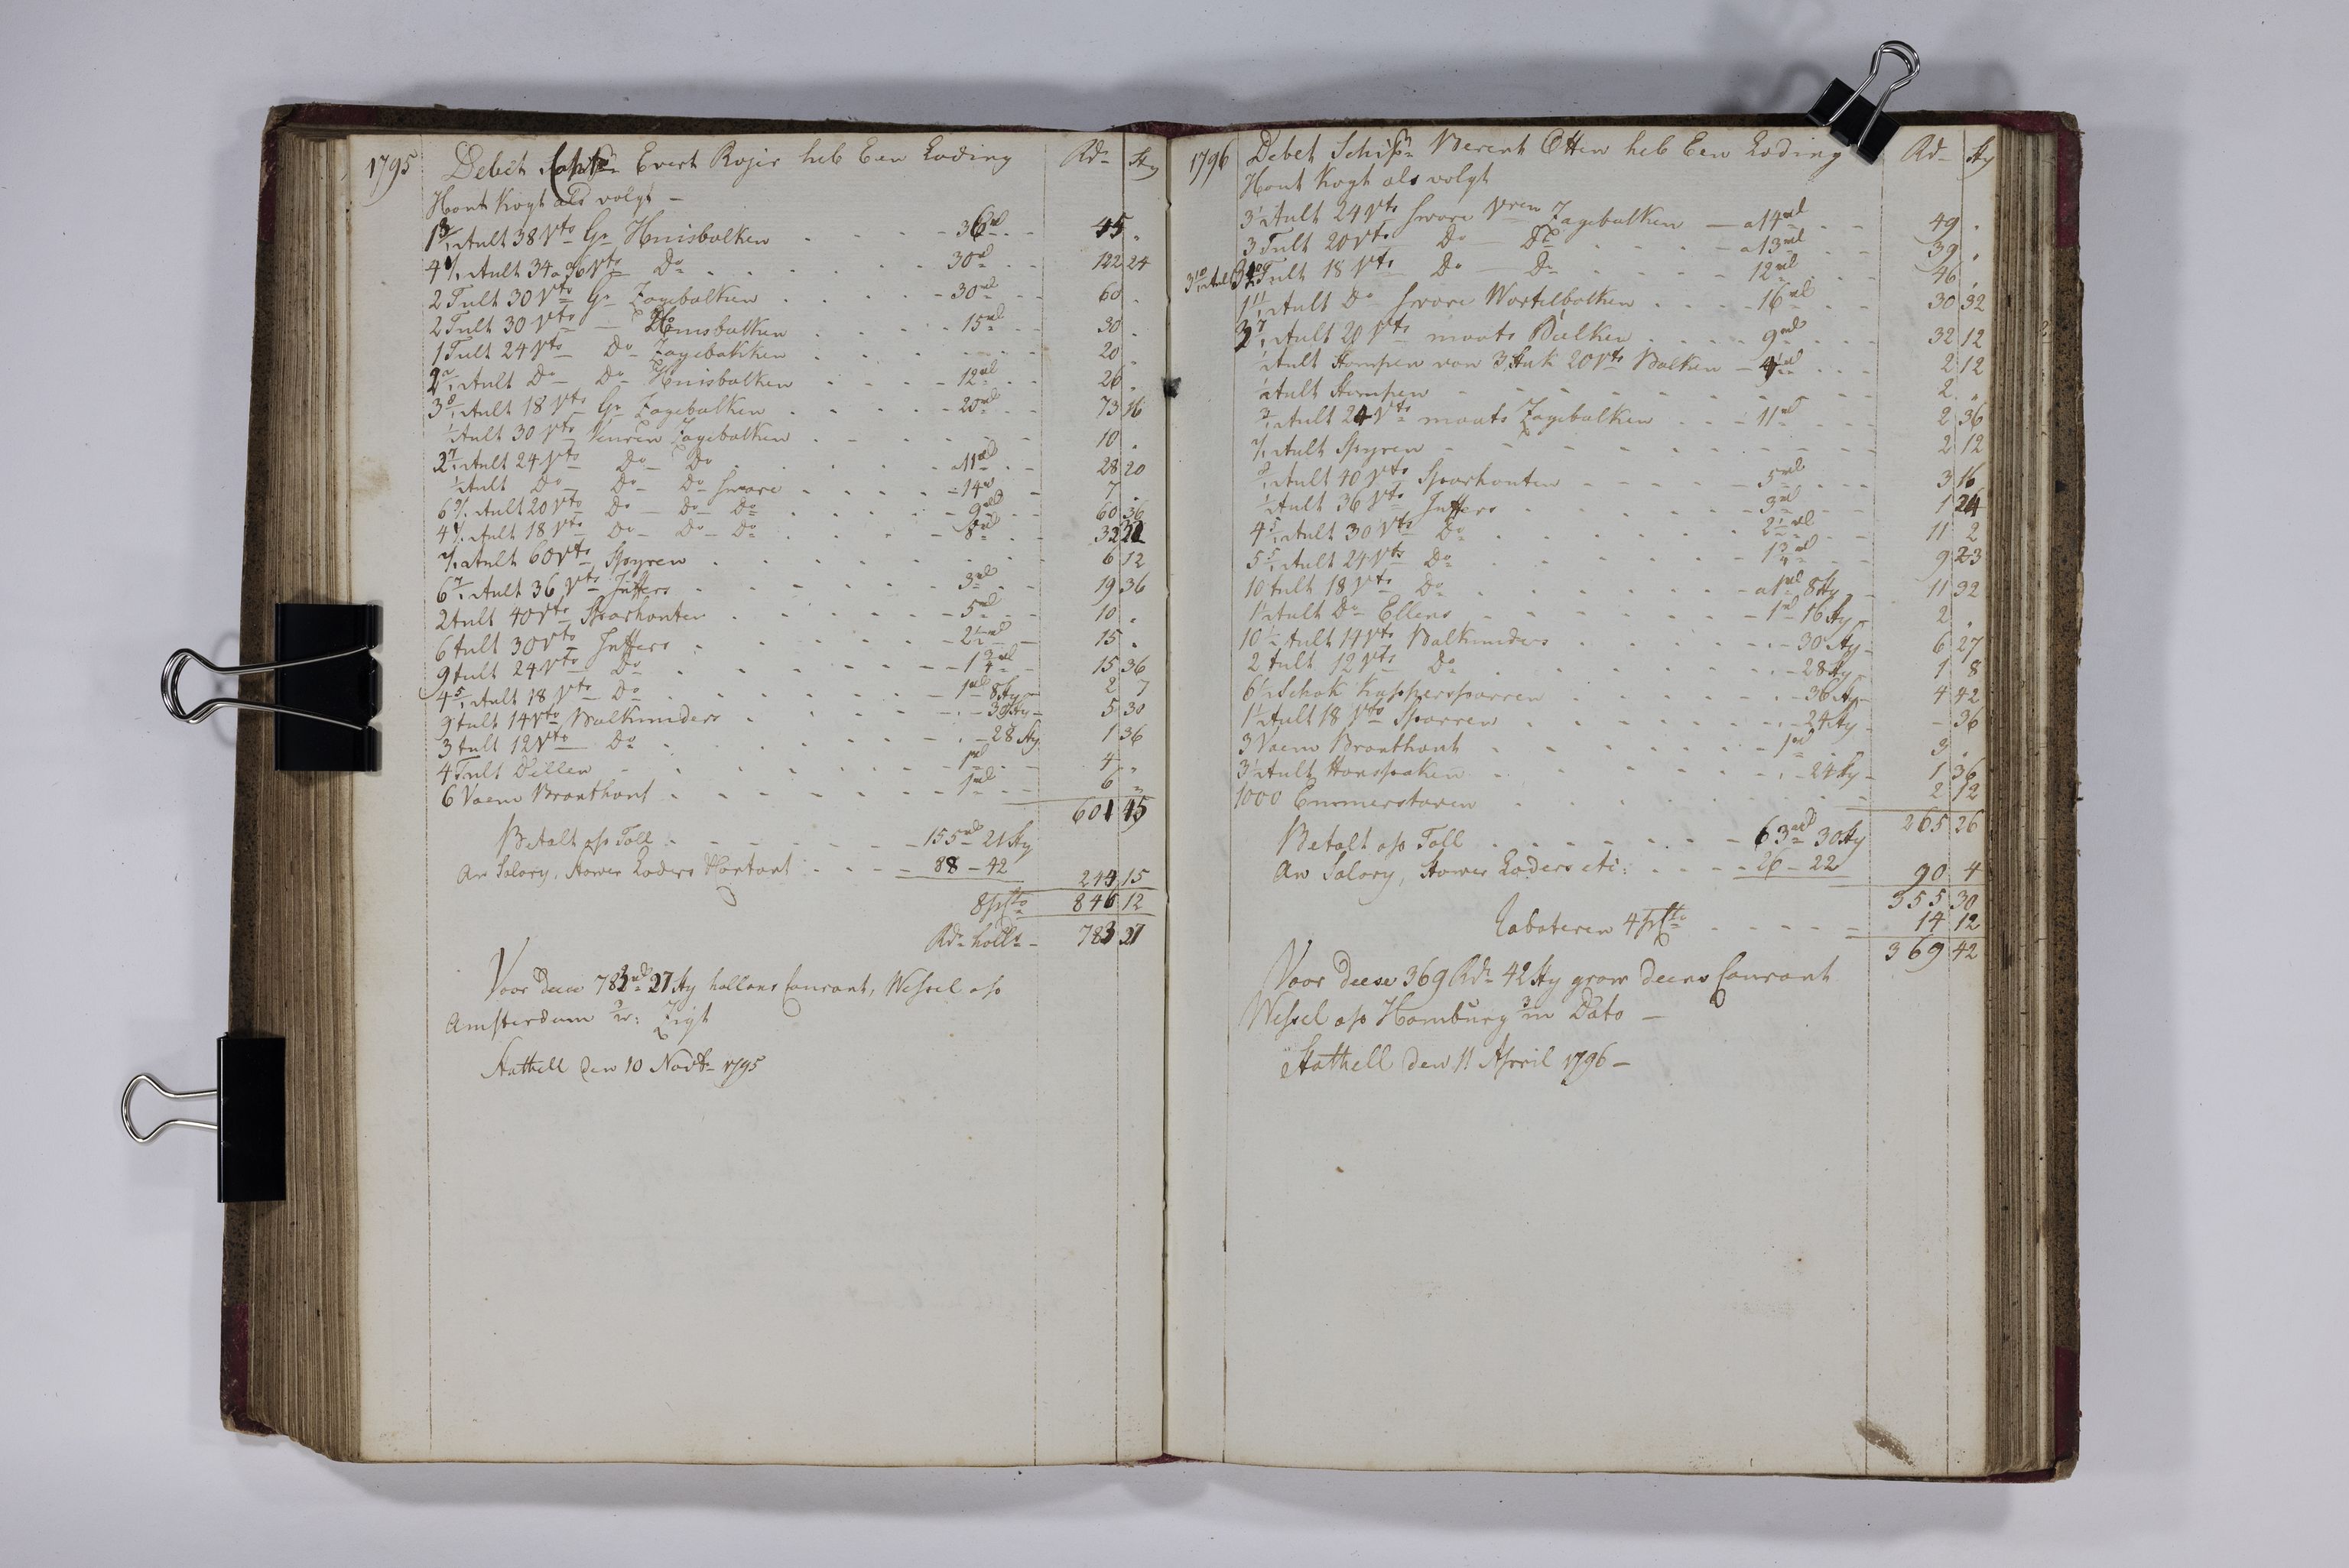 1795 Debet Evert Rojir heb Een Loding Rd Sty
Hont kogt als volgt
1 Tult 38 Vto Gr Huisbalken 36 rd 45
4 Tult 34 a 36 Vto Do 30 rd 122 24
2 Tult 30 Vto Gr Zagebalken 30 rd 60
2 Tult 30 Vto Huisbalken 15 rd 30
1 Tult 24 Vto Do Zagebalken 20
Tult Do Do Huisbalken 12 rd 26
3 8/12 Tult 18 Vto Gr Zagebalken 20 rd 73 16
1/2 Tult 30 Vto Vuren Zagebalken 10
2 7/12 Tult 24 Vto Do Do a 11 rd 28 20
1/2 Tult Do Do Do Swore 14 rd 7
6 9/12 Tult 20 Vto Do Do Do 9 rd 60 36
4 Tult 18 Vto Do Do Do 8 rd 32
Tult 60 Vto Spyren 6 12
6 7/12 Tult 36 Vto Juffers 3 rd 19 36
2 tult 40 Vto Sparhonten 5 rd 10
6 tult 30 Vto Juffers 2 1/2 rd 15
9 tult 24 Vto Do 1 3/4 rd 15 36
4 5/12 Tult 18 Vto Do 1 rd 8 Sty 2 7
9 tult 14 Vto Balkunders 30 Sty 5 30
3 tult 12 Vto Do 28 Sty 1 36
4 Tult Dellen 1 rd 4
6 Vaem Branthont 1 rd 6
601 45
Betalt op Toll 155 rd 21 Sty
An Salary, Stower Loders Hortant 88 - 42 244 15
8 pCto 846 12
Rd holls 783 21
Voor deese 783 rd 21 Sty hollans Courant, Wessel op
Amsterdam Zigt
Stathell den 10 Novbr 1795
1796 Debet Schipr Berent Otten heb Een Loding Rd Sty
Hont kogt als volgt
3 1/2 Tult 24 Vto Swore Vren Zagebalken a 14 rd 49
3 Tult 20 Vto Do Do a 13 rd 39
3 10/12 Tult Tult 18 Vto Do Do 12 rd 46
1 11/12 Tult Do Swore Wortelbalken 16 rd 30 32
3 7/12 Tult 20 Vto maats Balken 9 rd 32 12
1/2 Tult Stompen van 3 Stuk 20 Vto Balken 4 1/2 rd 2 12
1/2 Tult Stompen 2
3/12 Tult 24 Vto maats Zagebalken 11 rd 2 36
Tult Spyren 2 12
Tult 40 Vto Sparhonten 5 rd 3 16
1/2 Tult 36 Vto Juffers 3 rd 1 24
4 5/12 Tult 30 Vto Do 2 1/2 rd 11 2
5 5/12 Tult 24 Vto Do 1 3/4 rd 9 23
10 tult 18 Vto Do a 1 rd 8 Sty 11 32
1 1/2 Tult Do Ellens 1 rd 16 Sty 2
10 1/2 Tult 14 Vto Balkunders 30 Sty 6 27
2 tult 12 Vto Do 28 Sty 1 8
6 1/2 Schok kappersparren 36 Sty 4 42
1 1/2 Tult 18 Vto Sparren 24 Sty - 36
3 Vaem Branthont 1 rd 3
3 1/2 Tult Honspaken 24 Sty 1 36
1000 Emmerstaven 2 12
265 26
Betalt op Toll 63 rd 30 Sty
An Salary, Stower Loders etc: 26 - 22 90 4
355 30
Labateren 4 pCto 14 12
369 42
Voor deese 369 Rd 42 Sty grow deens Courant
Wessel op Hamburg 3/m Dato
Stathell den 11 April 1796